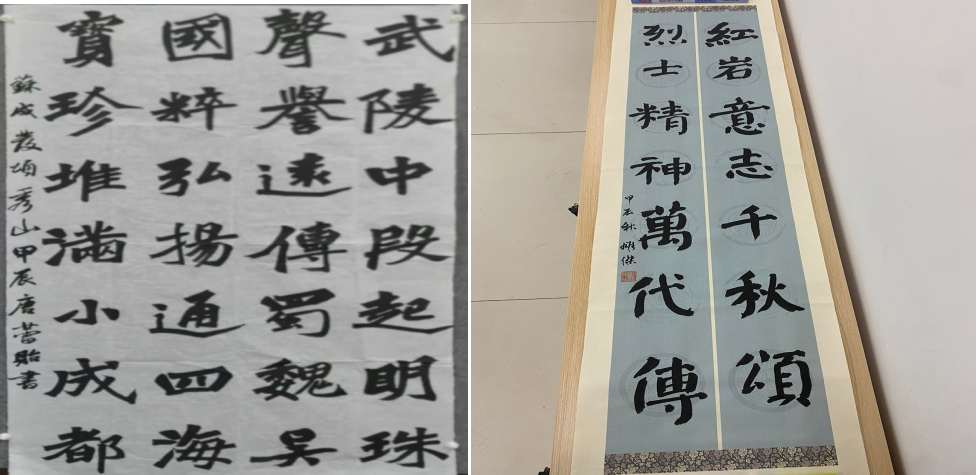 武陵中段起明珠
聲譽遠傳蜀魏吴
國粹弘揚通四海
寶珍堆滿小成都
蘇成發頌秀山甲辰唐蕾貽書
紅岩意志千秋頌
烈士精神萬代傳
甲辰秋